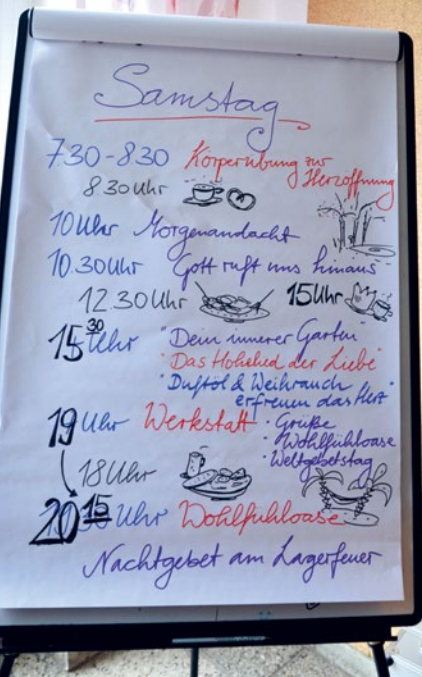 Samstag
7.30-8.30 Körperübung zur
Herzöffnung
8.30 Uhr
10 Uhr Morgenandacht
10.30 Uhr Gott ruft uns hinaus
12.30 Uhr 15 Uhr
15 30 Uhr "Dein innerer Garten"
"Das Hohelied der Liebe"
"Duftöl & Weihrauch
erfreuen das Herz"
19 Uhr Werkstatt · Grüße
· Wohlfühloase
· Weltgebetstag
18 Uhr
20 15 Uhr Wohlfühloase
Nachtgebet am Lagerfeuer